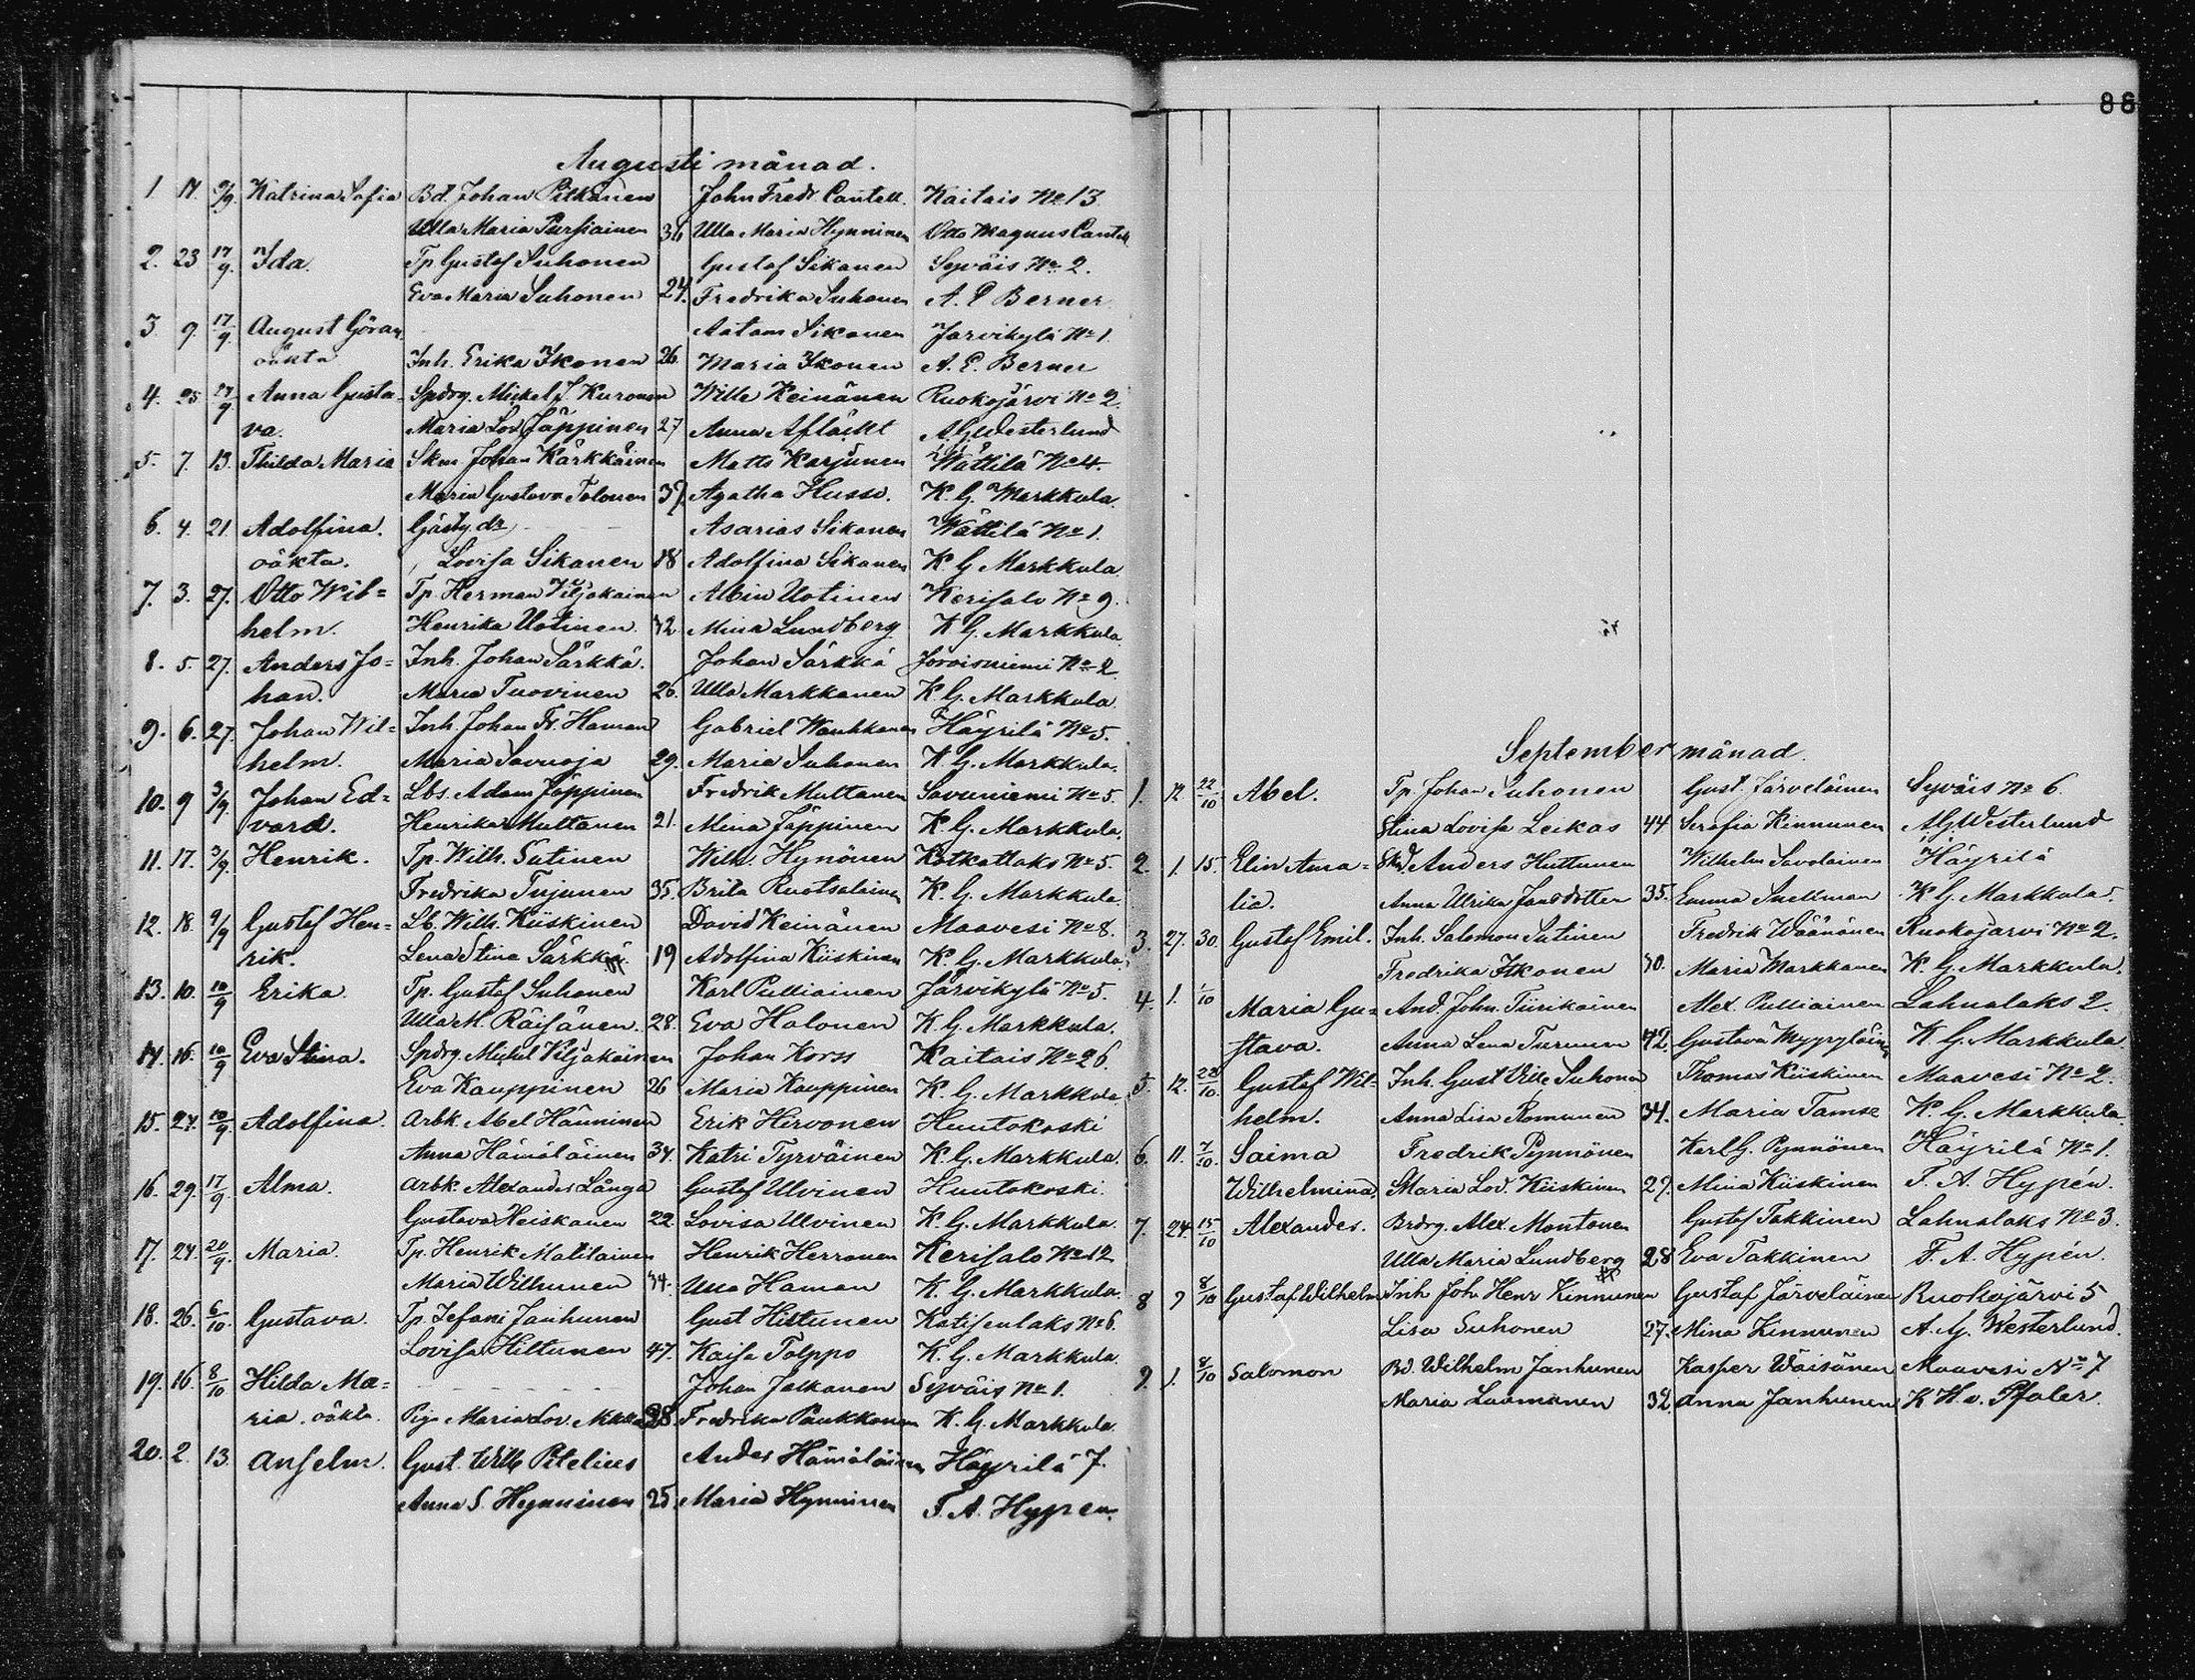 88
Augusti månad.
1. 17. 9/9. Katrina Sofia Bd. Johan Pitkänen John Fredr. Cantell. Kaitais No 13
Ulla Maria Pursiainen 36 Ulla Maria Hynninen Otto Magnus Cantell
2. 23 17/9. Ida. Tp Gustaf Suhonen Gustaf Sikanen Syväis No 2.
Eva Maria Suhonen 24. Fredrika Suhonen A. E Berner
3 9. 17/9. August Göran Aatam Sikanen Jarvikylä No 1.
oäkta Inh. Erika Ikonen 26. Maria Ikonen A. E. Berner
4. 25 17/9 Anna Gusta- Spdrg. Mickel J. Kuronen Wille Keinänen Ruokojärvi No 2.
va. Maria Lov. Jäppinen 27 Anna Afläckt A G Westerlund
5. 7. 13. Thilda Maria Skm Johan Kärkkäinen Matts Karjunen Wättilä No 4.
Maria Gustava Tolonen 37. Agatha Husso. K. G. Markkula.
6. 4. 21. Adolfina. Gästg. dr Asarias Sikanen Wättilä No 1.
oäkta. Lovisa Sikanen 18 Adolfina Sikanen K. G Markkula.
7. 3. 27. Otto Wil= Tp. Herman Viljakainen Albin Uotinen Kerisalo No 9.
helm. Henrika Uotinen. 32. Mina Lundberg K G. Markkula
8. 5. 27. Anders Jo= Inh. Johan Särkkä. Johan Särkkä Joroisniemi No 2.
han. Maria Tuovinen 26. Ulla Markkanen K. G. Markkula.
9. 6. 27. Johan Wil= Inh. Johan Fr. Haman Gabriel Wauhkonen Häyrilä No 5.
helm. Maria Savuoja 29. Maria Suhonen K. G. Markkula.
10. 9 3/9. Johan Ed= Lbs. Adam Jäppinen Fredrik Multanen Savuniemi No 5.
vard. Henrika Multanen 21. Mina Jäppinen K. G. Markkula.
11. 17. 3/9. Henrik. Tp. Wilh. Sutinen Wilh. Hynönen Kotkatlaks No 5.
Fredrika Tujunen 35. Brita Ruotsalainen K. G. Markkula.
12. 18. 9/9 Gustaf Hen= Lb. Wilh. Kiiskinen David Keinänen Maavesi No 8.
rik. Lena Stina Särkkä 19 Adolfina Kiiskinen K. G. Markkula.
13. 10. 10/9 Erika. Tp. Gustaf Suhonen Karl Pulliainen Järvikylä No 5.
Ulla M. Räisänen. 28. Eva Halonen K. G. Markkula.
14. 16. 10/9 Eva Stina. Spdrg. Mickel Viljakainen Johan Korss Kaitais No 26.
Eva Kauppinen 26 Maria Kauppinen K. G. Markkula
15. 27. 10/9. Adolfina. Arbk. Abel Hänninen Erik Hirvonen Huutokoski
Anna Hämäläinen 34. Katri Tyrväinen K. G. Markkula.
16. 29. 17/9. Alma. Arbk. Alexander Långa Gustaf Ulvinen Huutokoski.
Gustava Heiskanen 22. Lovisa Ulvinen K. G. Markkula.
17. 24. 20/9. Maria. Tp. Henrik Matilainen Henrik Herranen Kerisalo No 12
Maria Willmunen 34. Ulla Haman K. G. Markkula.
18. 26. 6/10. Gustava. Tp. Tefani Janhunen Gust Hiltunen Katisenlaks No 6.
Lovisa Hiltunen 47. Kaisa Tolppo K. G. Markkula.
19. 16. 8/10 Hilda Ma= Johan Jalkanen Syväis No 1.
ria. oäkta. Piga Maria Lov. 28. Fredrika Paukkonen K. G. Markkula.
20. 2. 13. Anselm. Gust. Wilh Pitelius Ander Hämäläinen Häyrilä 7.
Anna S. Hynninen 25. Maria Hynninen F. A. Hypen.
September månad.
1. 12. 22/10 Abel. Tp. Johan Suhonen Gust. Järveläinen Syväis No 6.
Stina Lovisa Leikas 44 Serafia Kinnunen A G Westerlund
2. 1. 15. Elin Ama= Skd. Anders Huttunen Wilhelm Savolainen Häyrilä
lia. Anna Ulrika Jansdotter 35. Emma Snellman K. G Markkula.
3. 27. 30. Gustaf Emil. Inh. Salomon Sutinen Fredrik Wäänänen Ruokojarvi No 2.
Fredrika Itkonen 30. Maria Markkanen K. G. Markkula.
4. 1. 1/10 Maria Gu= And. John. Tiirikainen Alex. Pulliainen Lahnalaks 2.
stava. Anna Lena Turunen 42. Gustava Myyryläinen K G. Markkula.
5. 12. 22/10. Gustaf Wil- Inh. Gust Ville Suhonen Thomas Kiiskinen Maavesi No 2.
helm. Anna Lisa Romunen 34. Maria Tamse K. G. Markkula.
6. 11. 7/10. Saima Fredrik Pynnönen Karl G. Pynnönen Häyrilä No 1.
Wilhelmina Maria Lov. Kiiskinen 29. Mina Kiiskinen F. A. Hypén.
7. 24. 15/10 Alexander. Brdrg. Alex. Montonen Gustaf Takkinen Lahnalaks No 3.
Ulla Maria Lundberg 28 Eva Takkinen F. A. Hypén.
8 9 8/10 Gustaf Wilhelm Inh Joh Henr Kinnunen Gustaf Järveläinen Ruokojärvi 5
Lisa Suhonen 27. Mina Kinnunen A. G. Westerlund.
9. 1. 8/10 Salomon Bd. Wilhelm Janhunen Kasper Wäisänen Maavesi No 7
Maria Laamanen 32. Anna Janhunen K H v. Pfaler.